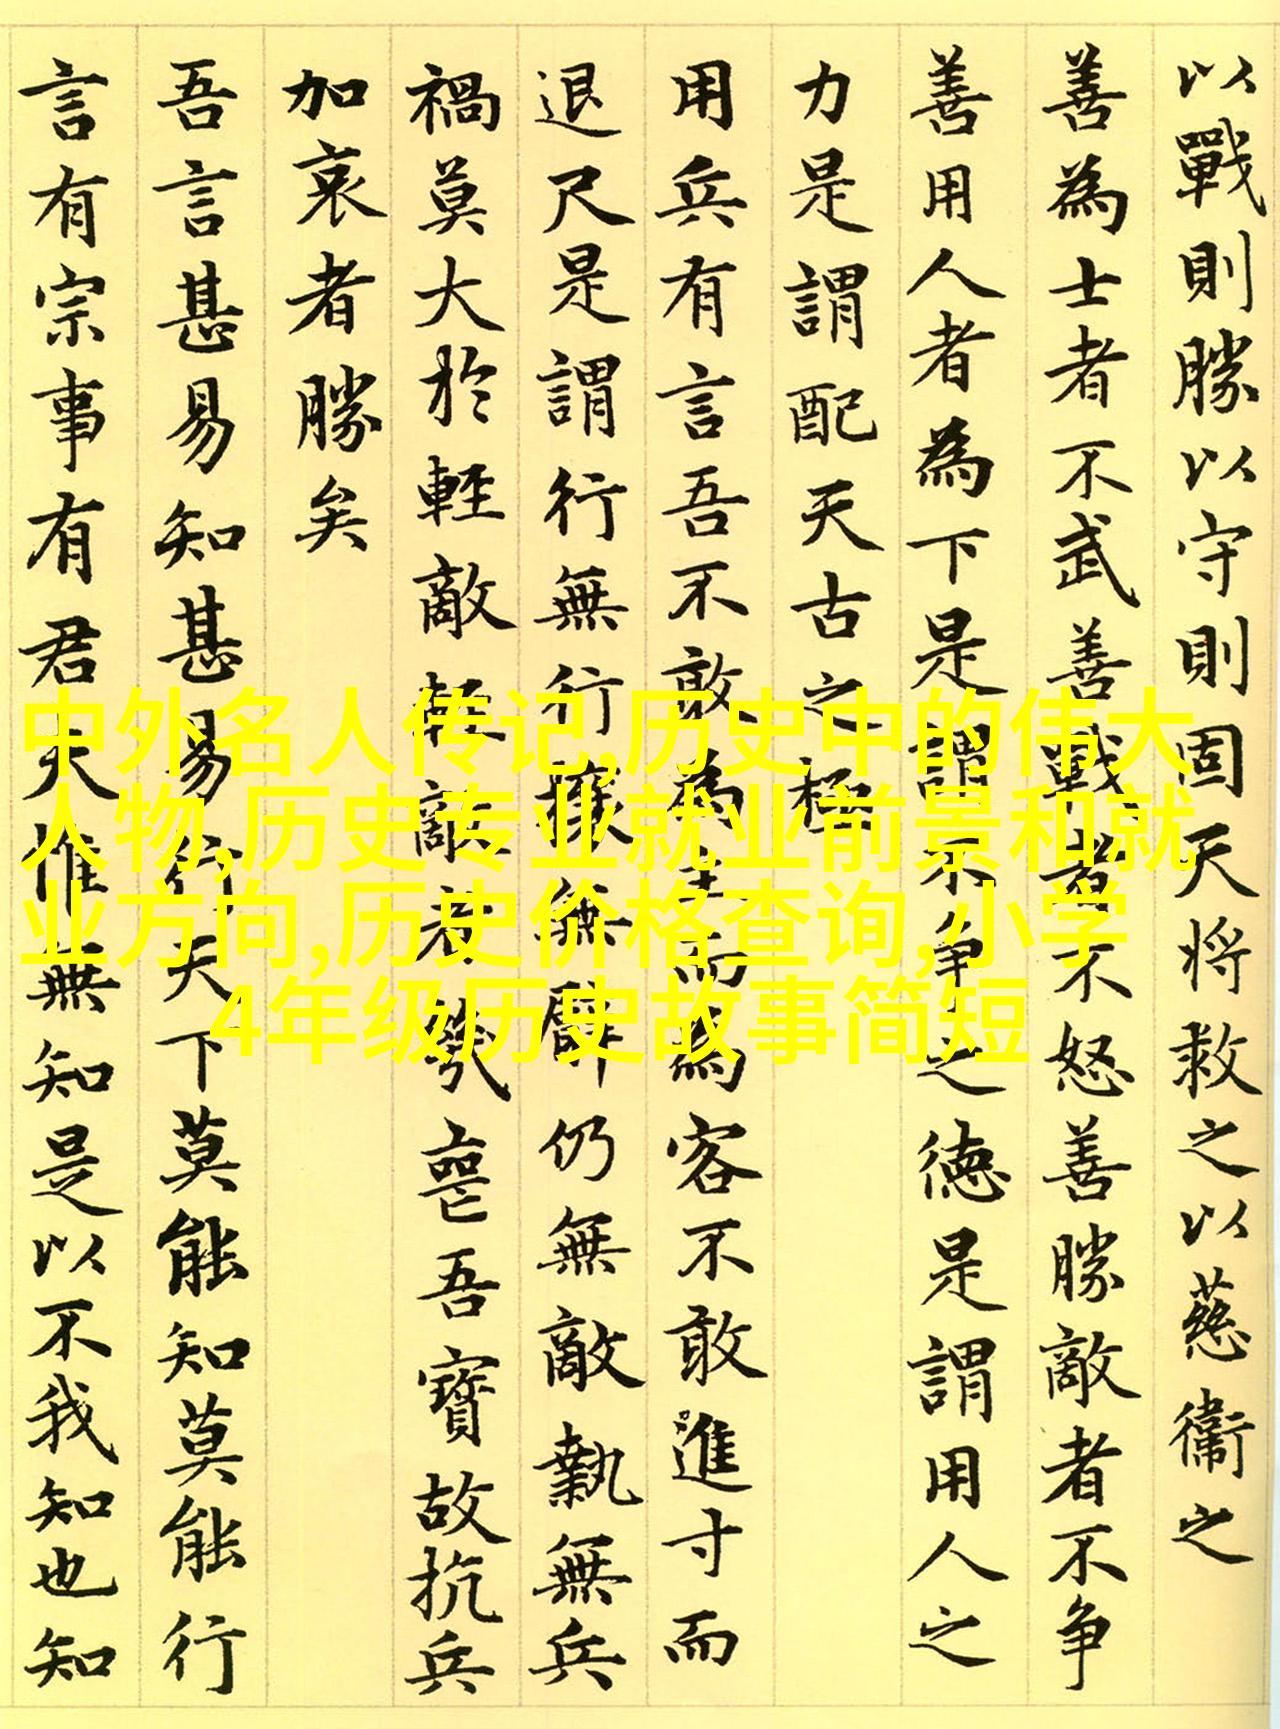 以戰則勝以守則固天將救之以慈衞之
善為士者不武善戰者不怒善勝敵者不争
善用人者為下是謂不争之德是謂用人之
力是謂配天古之極
用兵有言吾不敢為主而為客不敢進寸而
退尺是謂行無行攘無臂仍無敵執無兵
禍莫大於輕敵輕敵者幾喪吾寶故抗兵
加哀者勝矣
吾言甚易知甚易行天下莫能知莫能行
言有宗事有君夫惟無知是以不我知也知
中外名人传记,历史中的伟大
人物,历史专业就业前景和就
业方向,历史价格查询,小学
4年级历史故事简短